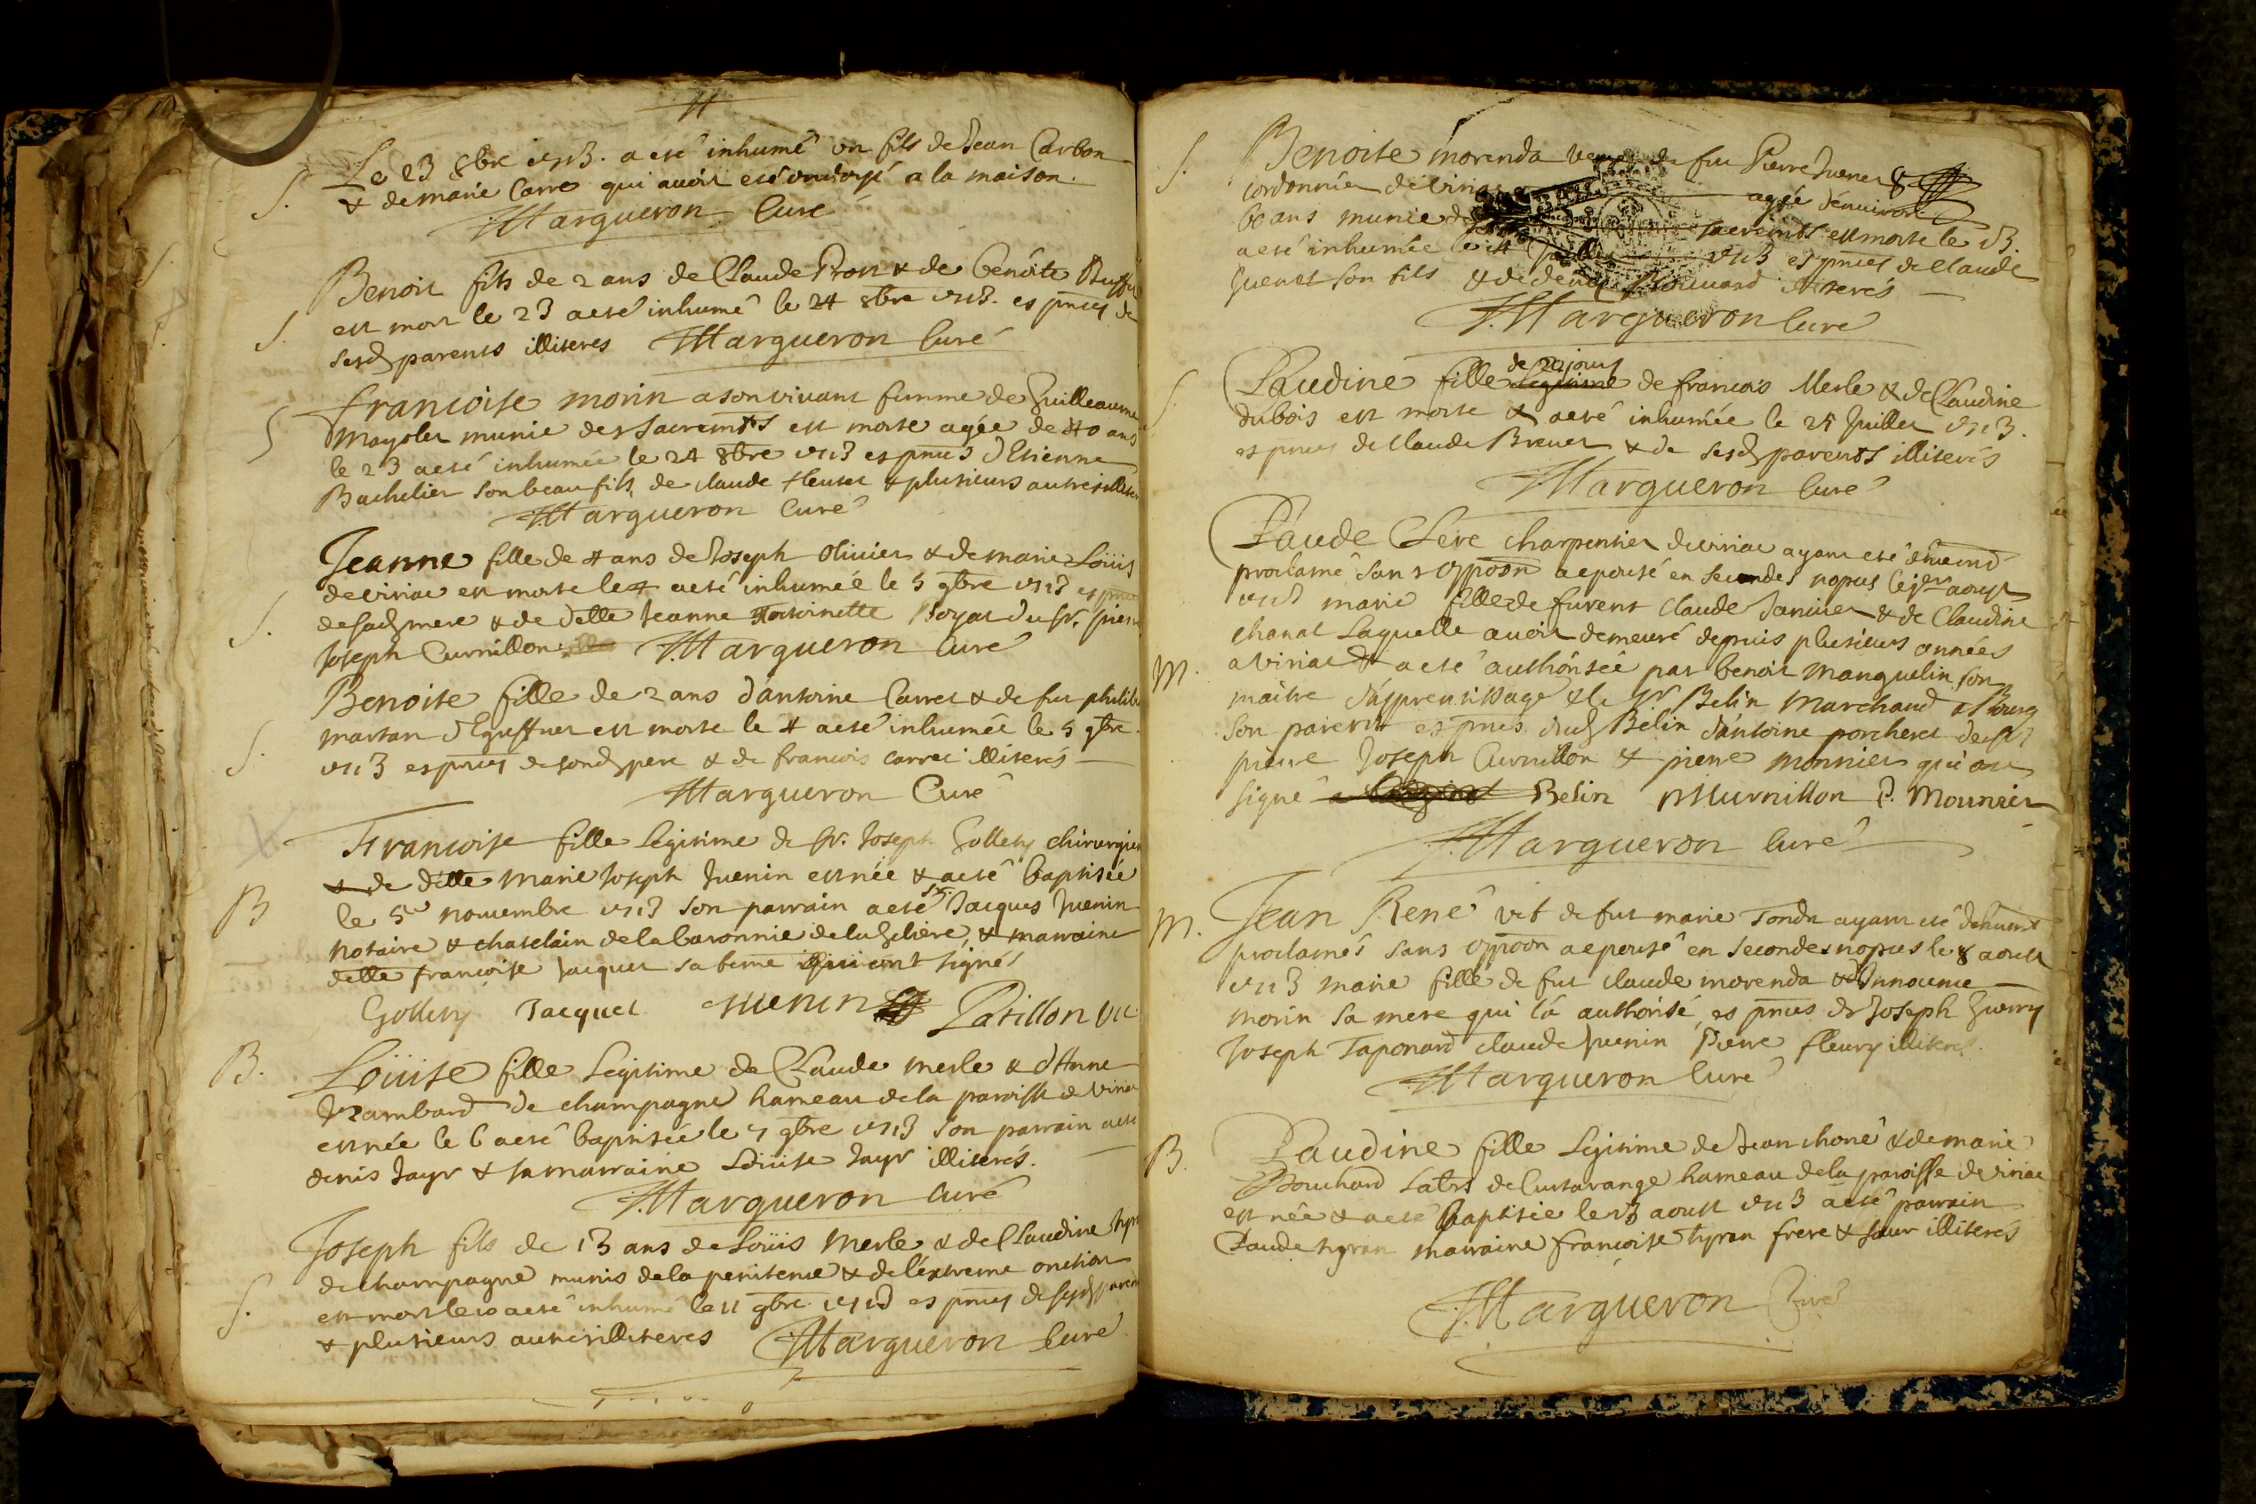 S.
Le 23 8bre 1713. a eté inhumé un fils de Jean Carbon
& de marie Carre qui avoit eté ondoyé a la maison.
Margueron Curé
S.
Benoit fils de 2 ans de Claude Pron & de benoite
est mort le 23 a eté inhumé le 24 8bre 1713. es pnces de
sesd parents illiteres Margueron Curé
S
francoise morin a son vivant femme de Guilleaume
Mayolet munie des Sacremts est morte agée de 40 ans
le 23 a eté inhumée le 24 8bre 1713 es pnces d'Etienne
Bachelier son beau fils, de claude & plusieurs autres
Margueron Curé
S.
Jeanne fille de 4 ans de Joseph Olivier & de marie Loüis
de viriac est morte le 4 a eté inhumée le 5 9bre 1713 es
de sad mere & de delle Jeanne du sr. pierre
Joseph Curnillon Margueron Curé
S.
Benoite fille de 2 ans d'antoine Carret & de fut
martan est morte le 4 a eté inhumée le 5 9bre
1713 es pnces de sond pere & de francois carret illiterés
Margueron Curé
B
Francoise fille legitime de sr. Joseph Gollety chirurgien
& de delle marie Joseph Juenin est née & a eté baptisée
le 5e novembre 1713 son parrain a eté sr. Jacques Juenin
notaire & chatelain de la baronnie de & marraine
delle francoise Jacquet sa qui ont signés
Gollety Jacquet Juenin Patillon vic
B.
Loüise fille legitime de Claude merle & d'Anne
de champagne hameau de la paroisse de viriac
est née le 6 a eté baptisée le 7 9bre 1713 son parrain a eté
denis Jayr & sa marraine Loüise Jayr illiterés.
Margueron curé
S.
Joseph fils de 13 ans de Loüis Merle & de Claudine
de champagne munis de la penitence & de l'extreme onction
est mort le 10 a eté inhumé le 11 9bre 1713 es pnces de sesd parents
& plusieurs autres illiteres Margueron Curé
S.
Benoite morenda veuve de fut Pierre Juenet
cordonnier de viriac agée d'environ
60 ans munie des sacremts est morte le 13.
a eté inhumée le 14 Juillet 1713 es pnces de Claude
Juenet son fils & de denis illiterés
Margueron Curé
S.
de 20 jours
Claudine fille legitime de francois Merle & de Claudine
dubois est morte & a eté inhumée le 25 Juillet 1713.
es pnces de Claude Brevet & de sesd parents illiterés
Margueron Curé
M.
Claude Seve charpentier de viriac ayant eté
proclamé sans oppoon a epousé en secondes nopces le 1er aoust
1713 marie fille de furent Claude Janiver & de Claudine
chanal Laquelle avoit demeuré depuis plusieurs années
a viriac & a eté authorisée par benoit manguelin son
maitre d'apprentissage & le sr Belin Marchand a Bourg
son parent es pnces dud Belin d'antoine porcheret de sr
pierre Joseph Curnillon & pierre monnier qui ont
signé Belin Curnillon P. Mounier
Margueron Curé
M.
Jean René vef de fut marie Tondu ayant eté
proclamés sans oppoon a epousé en secondes nopces le 8 aoust
1713 marie fille de fut claude morenda & d'Innocence
morin sa mere qui l'a authorisé, es pnces de Joseph Guerry
Joseph Taponard claude Juenin Pierre fleury illiterés.
Margueron Curé
B.
Claudine fille legitime de Jean choné & de marie
Bouchard de Curtarange hameau de la paroisse de viriac
est née & a eté baptisée le 13 aoust 1713 a eté parrain
Claude tyran marraine francoise tyran frere & sœur illiterés
Margueron Curé